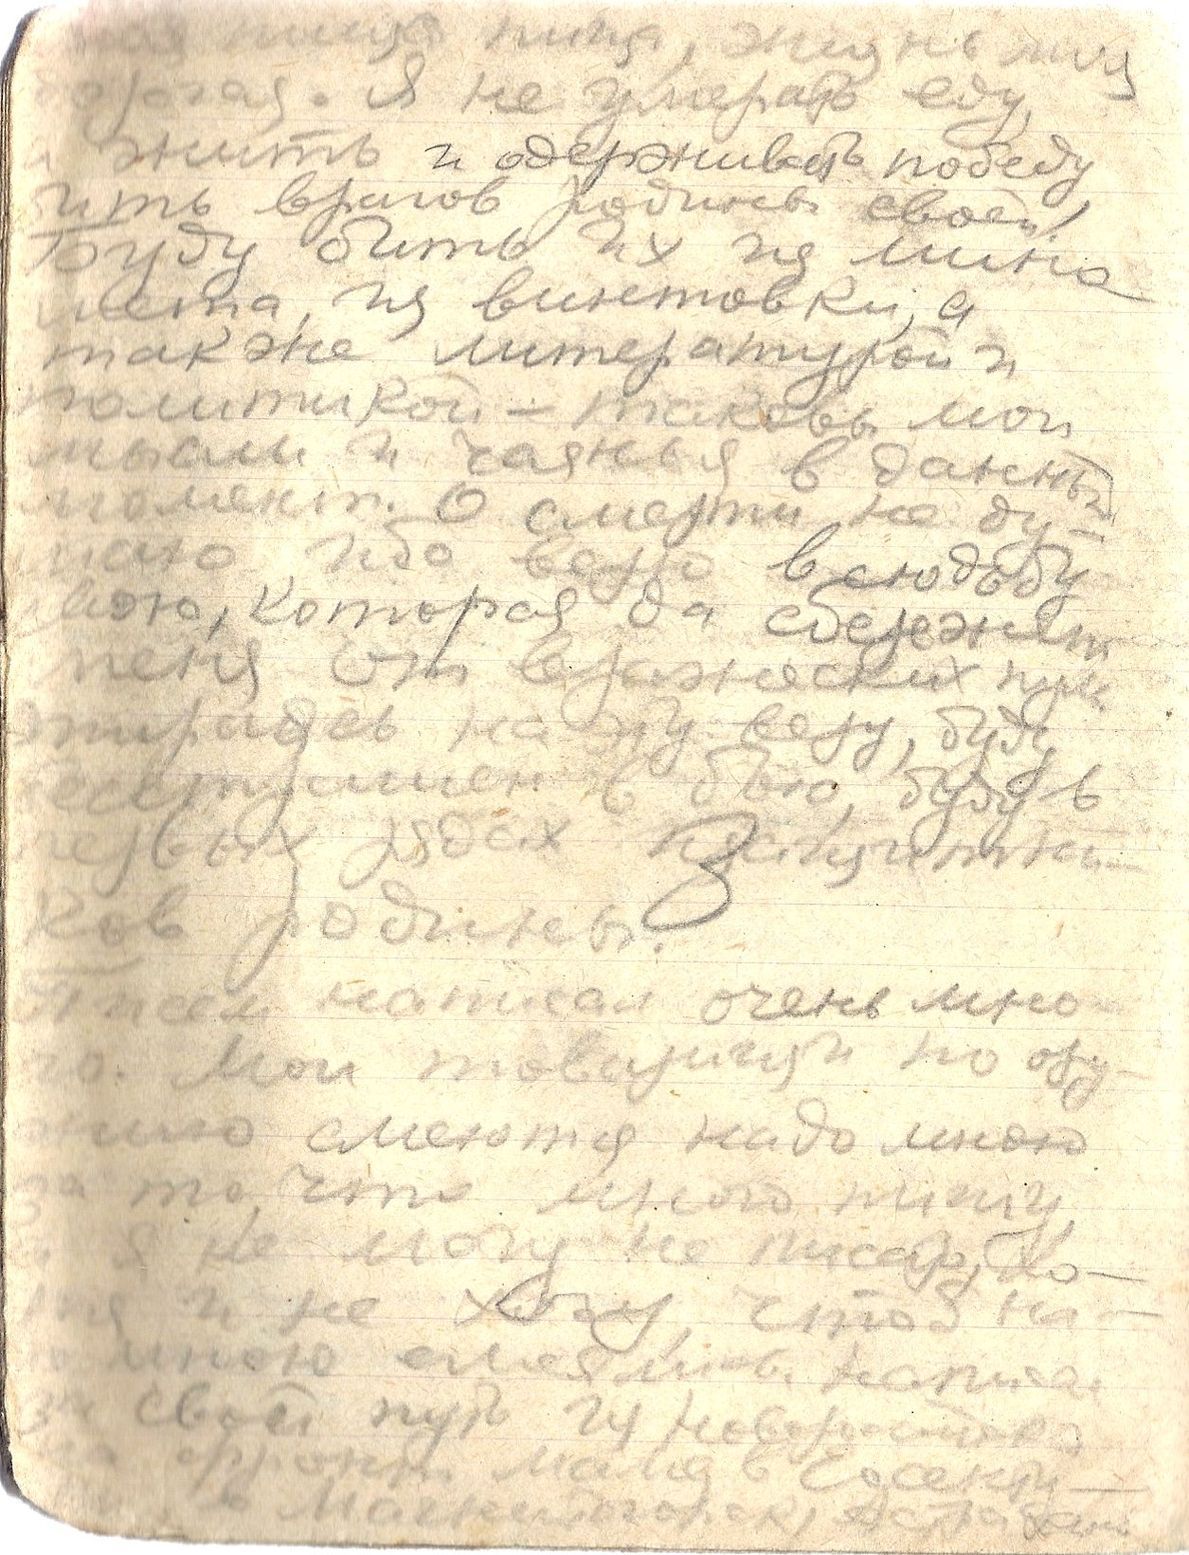 пища, жизнь моя
дорогая. Я не умерать еду,
а жить и одерживать победу
бить врагов родины своей,
Буду бить их из мино
мета, из винтовки, а
также литературой и
политикой – таковы мои
мысли и чаянья в данный
момент. О смерти не ду-
маю ибо верю в сюдьбу
свою, которая да сбережет
меня от вражеских пуль
опираясь на эту веру, буду
бесстрашен в бою, буду в
первых рядах защитни-
ков родины.
Писем написал очень мно-
го. Мои товарищи по ору-
жию смеются надо мною
за то, что много пишу,
а я не могу не писать, хо-
тя и не хочу, чтоб на-
до мною смеялись. Написал
за свой путь из Новоростова
на фронт маме в Есенту-
в Магнитогорск, Астрахань